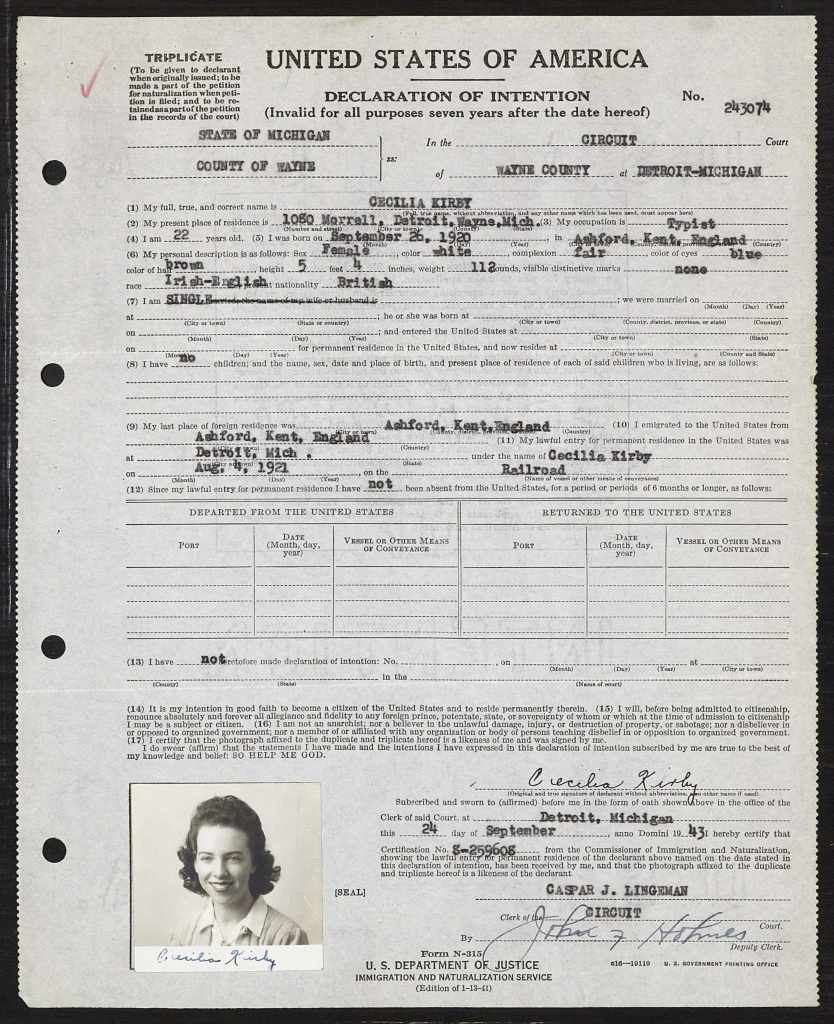 TRIPLICATE
(To be given to declarant
when originally issued; to be
made a part of the petition
for naturalization when peti-
tion is filed; and to be re-
tained as a part of the petition
in the records of the court)
UNITED STATES OF AMERICA
DECLARATION OF INTENTION
(Invalid for all purposes seven years after the date hereof)
No. 243074
STATE OF MICHIGAN
COUNTY OF WAYNE
ss:
In the CIRCUIT Court
of WAYNE COUNTY at DETROIT-MICHIGAN
(1) My full, true, and correct name is CECILIA KIRBY
(Full, true name, without abbreviation, and any other name which has been used, must appear here)
(2) My present place of residence is 1080 Morrell, Detroit, Wayne, Mich. (3) My occupation is Typist
(Number and street) (City or town) (County) (State)
(4) I am 22 years old. (5) I was born on September 26, 1920, in Ashford, Kent, England
(Month) (Day) (Year) (Country)
(6) My personal description is as follows: Sex Female, color white, complexion fair, color of eyes blue
color of hair brown, height 5 feet 4 inches, weight 112 pounds, visible distinctive marks none
race Irish-English nationality British
(7) I am SINGLE married; the name of my wife or husband is ; we were married on
(Month) (Day) (Year)
at ; he or she was born at
(City or town) (State or country) (City or town) (County, district, province, or state) (Country)
on ; and entered the United States at
(Month) (Day) (Year) (City or town) (State)
on for permanent residence in the United States, and now resides at
(Month) (Day) (Year) (City or town) (County and State)
(8) I have no children; and the name, sex, date and place of birth, and present place of residence of each of said children who is living, are as follows:
(9) My last place of foreign residence was Ashford, Kent, England (10) I emigrated to the United States from
(City or town) (Country)
Ashford, Kent, England (11) My lawful entry for permanent residence in the United States was
(Country)
at Detroit, Mich. under the name of Cecilia Kirby
(City or town) (State)
on Aug. 4, 1921, on the Railroad
(Month) (Day) (Year) (Name of vessel or other means of conveyance)
(12) Since my lawful entry for permanent residence I have not been absent from the United States, for a period or periods of 6 months or longer, as follows:
DEPARTED FROM THE UNITED STATES RETURNED TO THE UNITED STATES
PORT DATE (Month, day, year) VESSEL OR OTHER MEANS OF CONVEYANCE PORT DATE (Month, day, year) VESSEL OR OTHER MEANS OF CONVEYANCE
(13) I have not heretofore made declaration of intention: No. , on at
(Month) (Day) (Year) (City or town)
in the
(County) (State) (Name of court)
(14) It is my intention in good faith to become a citizen of the United States and to reside permanently therein. (15) I will, before being admitted to citizenship,
renounce absolutely and forever all allegiance and fidelity to any foreign prince, potentate, state, or sovereignty of whom or which at the time of admission to citizenship
I may be a subject or citizen. (16) I am not an anarchist; nor a believer in the unlawful damage, injury, or destruction of property, or sabotage; nor a disbeliever in
or opposed to organized government; nor a member of or affiliated with any organization or body of persons teaching disbelief in or opposition to organized government.
(17) I certify that the photograph affixed to the duplicate and triplicate hereof is a likeness of me and was signed by me.
I do swear (affirm) that the statements I have made and the intentions I have expressed in this declaration of intention subscribed by me are true to the best of
my knowledge and belief: SO HELP ME GOD.
Cecilia Kirby
(Original and true signature of declarant without abbreviation, also other name if used)
Subscribed and sworn to (affirmed) before me in the form of oath shown above in the office of the
Clerk of said Court, at Detroit, Michigan
this 24 day of September, anno Domini 19 43 I hereby certify that
Certification No. 8-259608 from the Commissioner of Immigration and Naturalization,
showing the lawful entry for permanent residence of the declarant above named on the date stated in
this declaration of intention, has been received by me, and that the photograph affixed to the duplicate
and triplicate hereof is a likeness of the declarant.
[SEAL]
CASPAR J. LINGEMAN
Clerk of the CIRCUIT Court.
By John F Holmes Deputy Clerk.
Cecilia Kirby
Form N-315
U. S. DEPARTMENT OF JUSTICE
IMMIGRATION AND NATURALIZATION SERVICE
(Edition of 1-13-41)
16—19119 U. S. GOVERNMENT PRINTING OFFICE